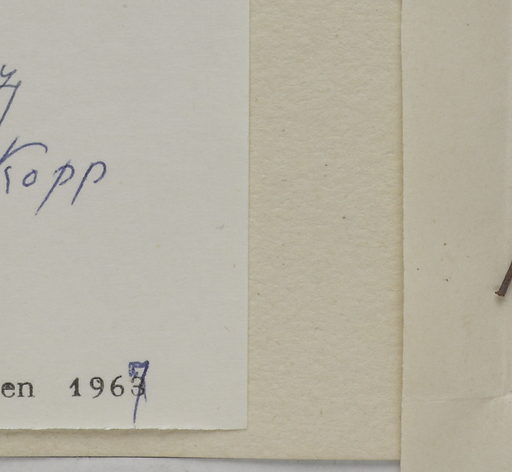 Kopp
en 1967